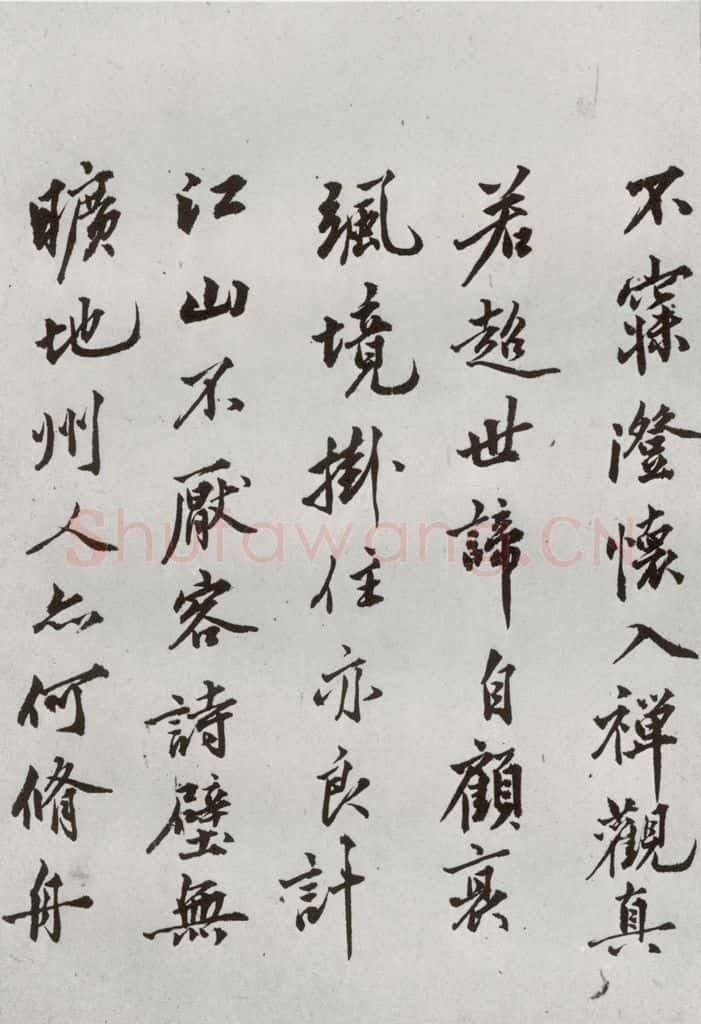 不寐澄懷入禪觀真
若超世諦自顧衰
颯境掛住亦良計
江山不厭客詩壁無
曠地州人亦何脩舟
Shufawang.CN